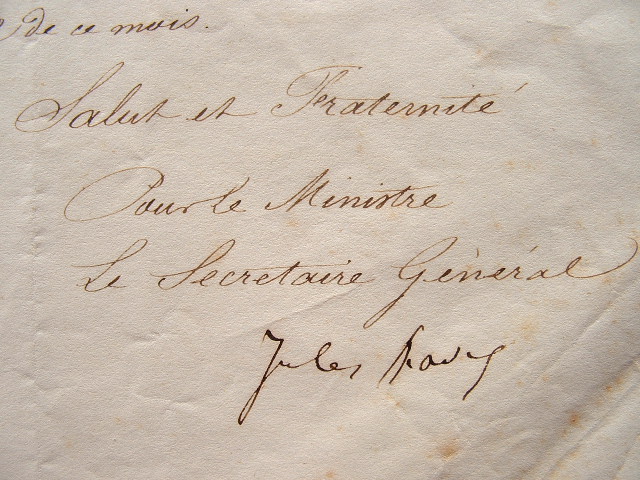 de ce mois.
Salut et Fraternité
Pour le Ministre
Le Secretaire Général
Jules Favre